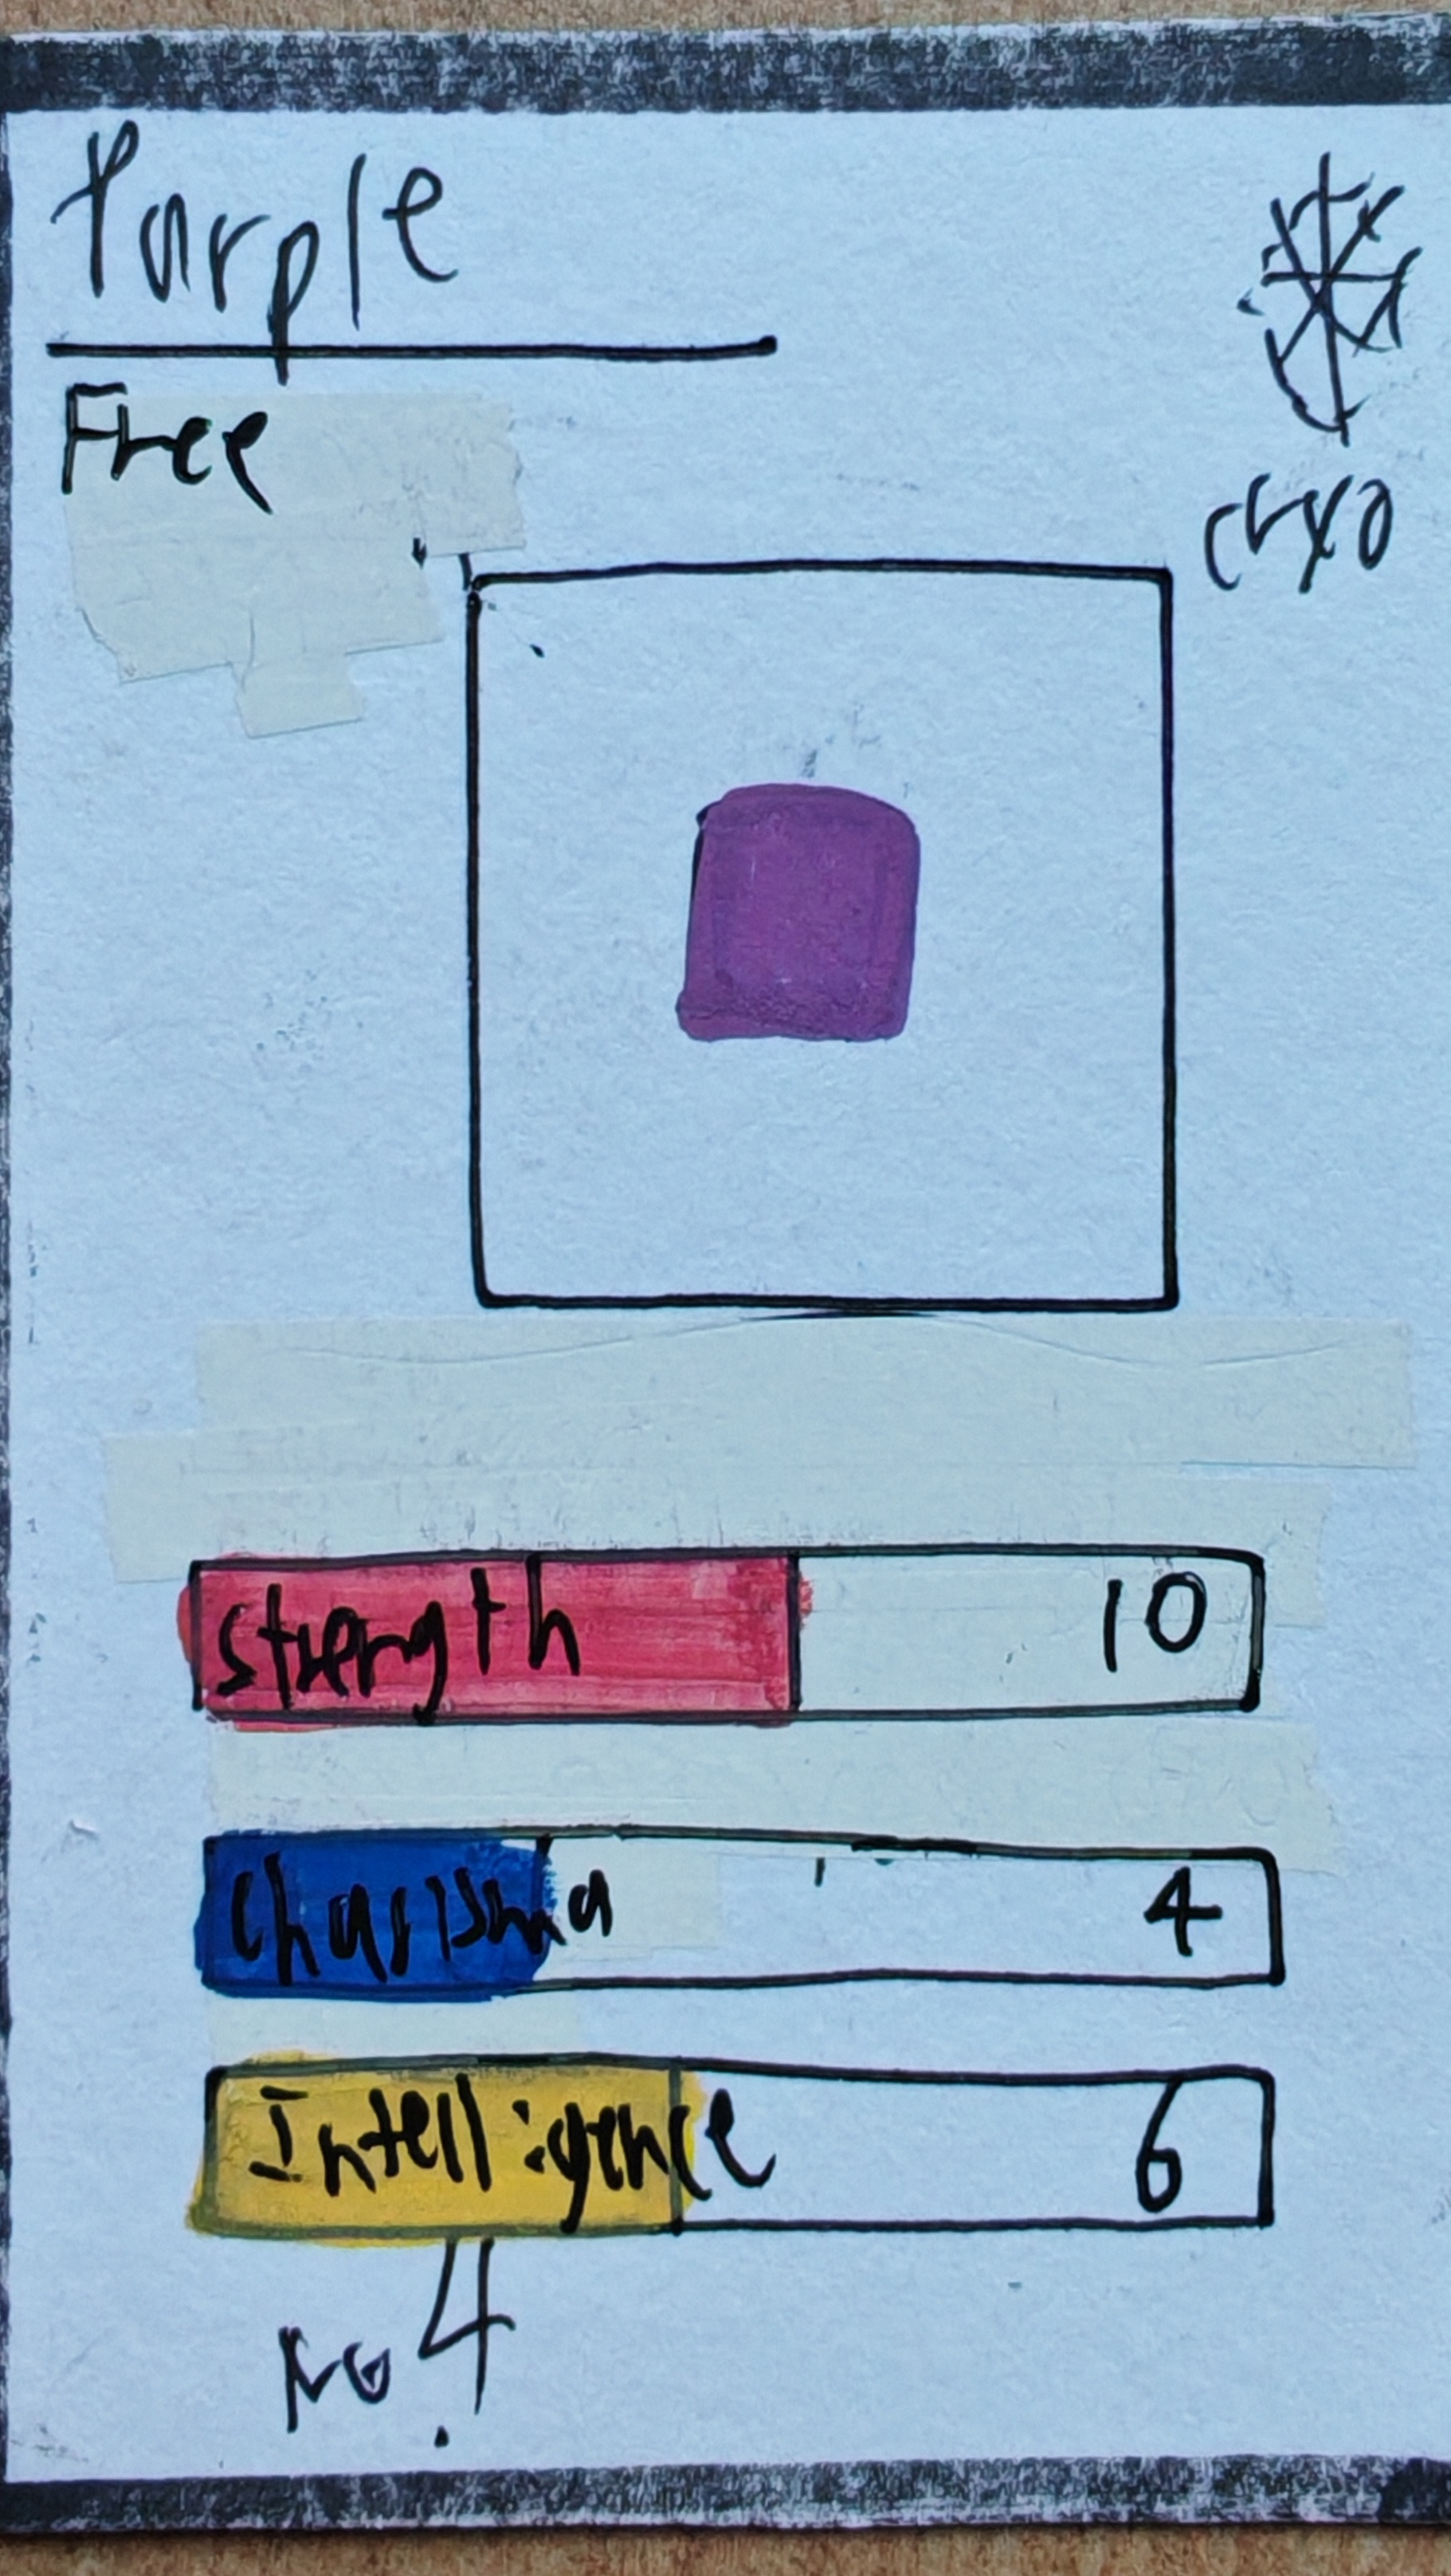 Purple
Free
cryo
strength 10
charisma 4
Intelligence 6
No.4